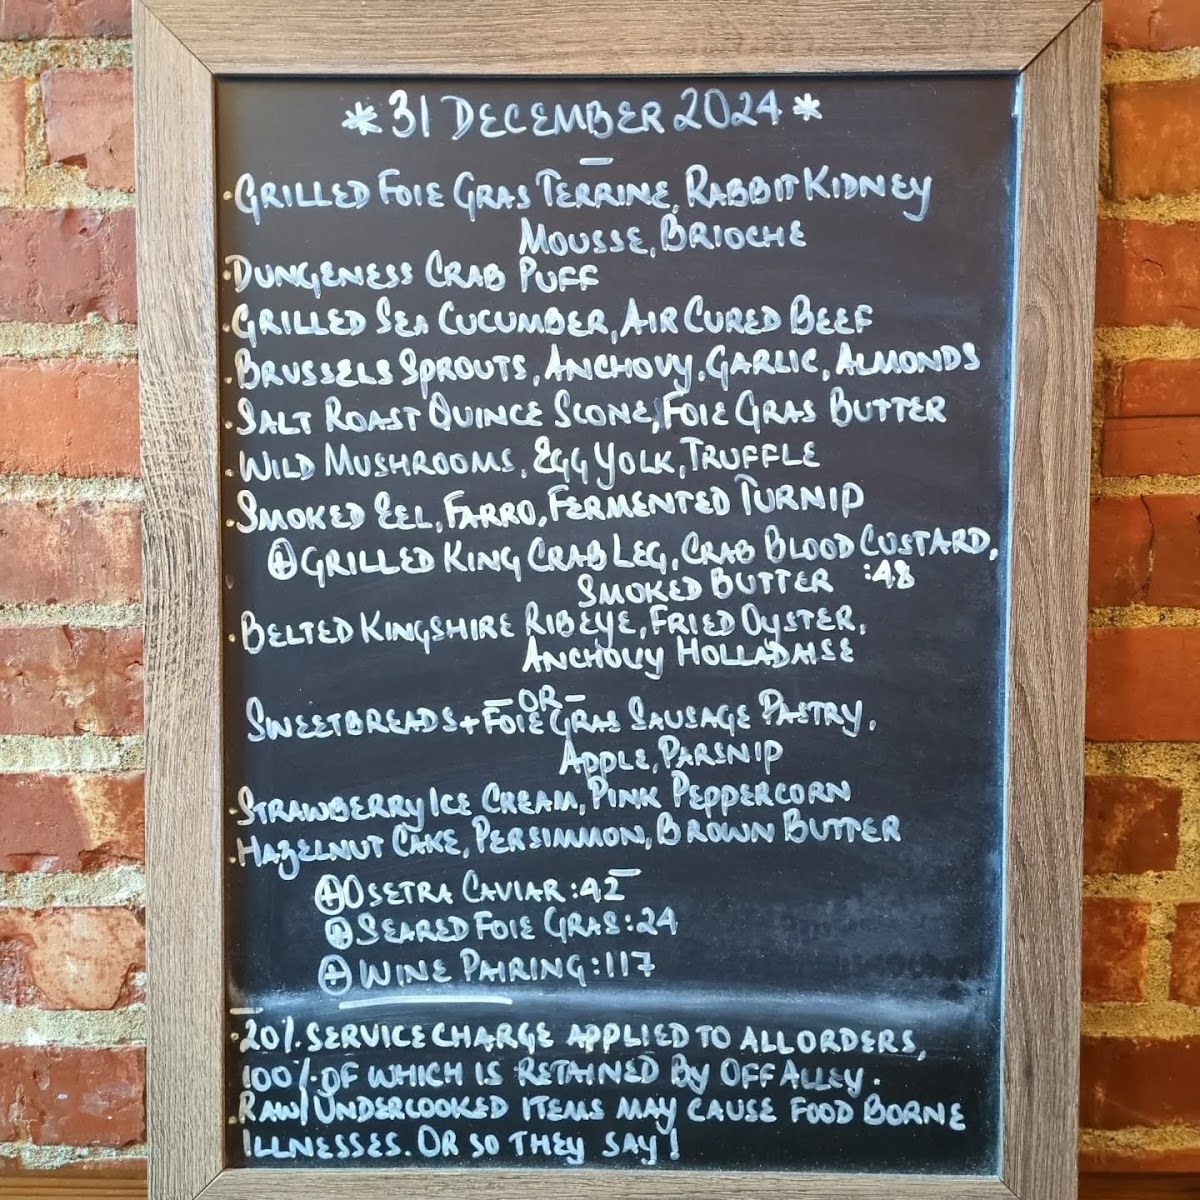 * 31 DECEMBER 2024 *
–
· GRILLED FOIE GRAS TERRINE, RABBIT KIDNEY
MOUSSE, BRIOCHE
· DUNGENESS CRAB PUFF
· GRILLED SEA CUCUMBER, AIR CURED BEEF
· BRUSSELS SPROUTS, ANCHOVY, GARLIC, ALMONDS
· SALT ROAST QUINCE SCONE, FOIE GRAS BUTTER
· WILD MUSHROOMS, EGG YOLK, TRUFFLE
· SMOKED EEL, FARRO, FERMENTED TURNIP
⊕ GRILLED KING CRAB LEG, CRAB BLOOD CUSTARD,
SMOKED BUTTER :48
· BELTED KINGSHIRE RIBEYE, FRIED OYSTER,
ANCHOVY HOLLADAISE
– OR –
SWEETBREADS + FOIE GRAS SAUSAGE PASTRY,
APPLE, PARSNIP
· STRAWBERRY ICE CREAM, PINK PEPPERCORN
· HAZELNUT CAKE, PERSIMMON, BROWN BUTTER
⊕ OSETRA CAVIAR : 42
⊕ SEARED FOIE GRAS : 24
⊕ WINE PAIRING : 117
· 20% SERVICE CHARGE APPLIED TO ALL ORDERS,
100% OF WHICH IS RETAINED BY OFF ALLEY.
· RAW/UNDERCOOKED ITEMS MAY CAUSE FOOD BORNE
ILLNESSES. OR SO THEY SAY!